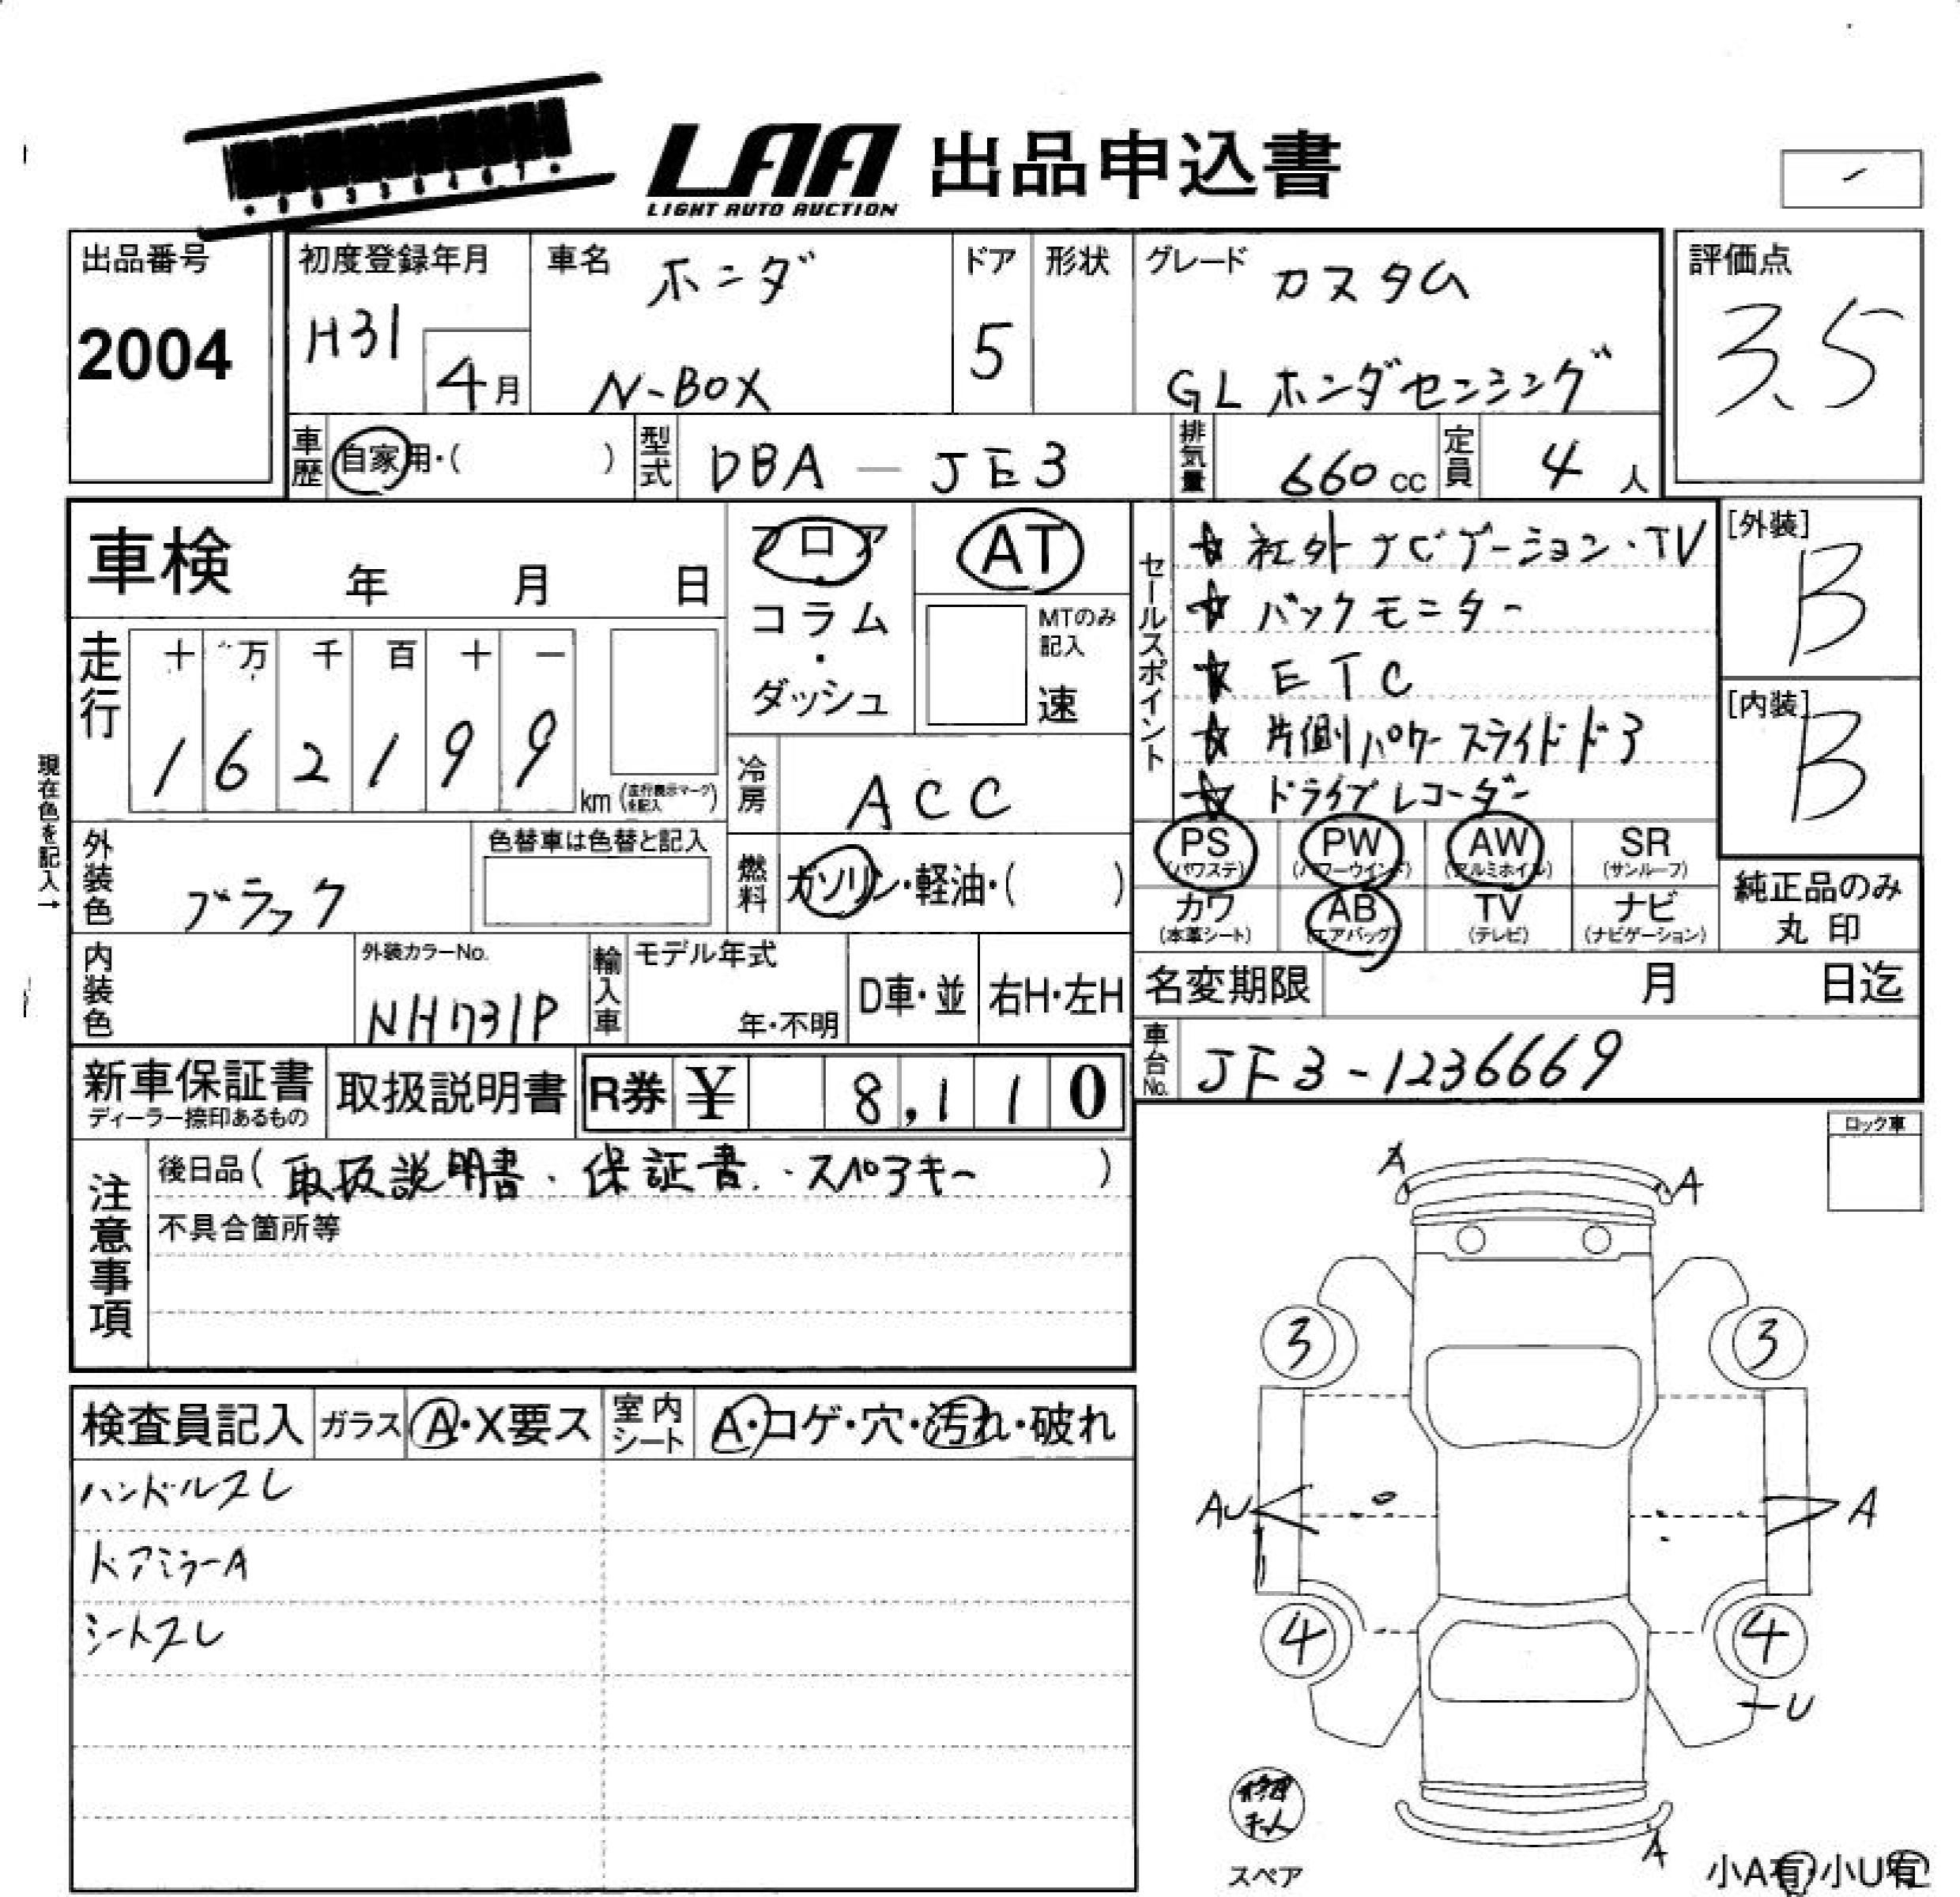 LAA 出品申込書
LIGHT AUTO AUCTION
出品番号
2004
初度登録年月
H31
4月
車名 ホンダ
N-BOX
ドア
5
形状
グレード カスタム
GL ホンダセンシング
評価点
3.5
車歴 自家用・( )
型式 DBA - JE3
排気量 660 cc
定員 4 人
車検 年 月 日
フロア
・
コラム
・
ダッシュ
AT
MTのみ
記入
速
セールスポイント
☆ 社外ナビゲーション・TV
☆ バックモニター
☆ ETC
☆ 片側パワースライドドア
☆ ドライブレコーダー
[外装]
B
[内装]
B
走行
十 万 千 百 十 一
1 6 2 1 9 9
km (走行表示マークを記入)
現在色を記入→
冷房 ACC
外装色 ブラック
色替車は色替と記入
燃料 ガソリン・軽油・( )
PS (パワステ)
PW (パワーウインド)
AW (アルミホイル)
SR (サンルーフ)
カワ (本革シート)
AB (エアバッグ)
TV (テレビ)
ナビ (ナビゲーション)
純正品のみ
丸印
内装色
外装カラーNo.
NH731P
輸入車
モデル年式
年・不明
D車・並
右H・左H
名変期限 月 日迄
車台No. JF3-1236669
新車保証書
ディーラー捺印あるもの
取扱説明書
R券 ¥ 8,110
ロック車
注意事項
後日品( 取扱説明書・保証書・スペアキー )
不具合箇所等
検査員記入
ガラス A・X要ス
室内シート A・コゲ・穴・汚れ・破れ
ハンドルスレ
ドアミラーA
シートスレ
A
A
3
3
AU
A
4
4
U
スペア
A
小A有・小U有